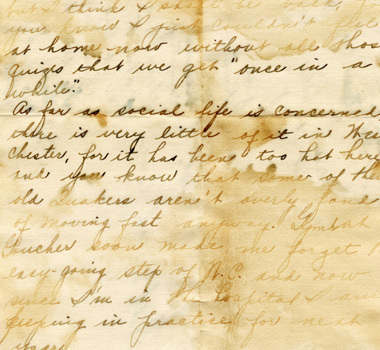 but I think I shall be back, f
you know I just couldn't feel
at home now without all thos
quizes that we get "once in a
while".
As far as social life is concerned,
there is very little of it in Wes
chester, for it has been too hot here
and you know that some of the
old Quakers aren't overly fond
of moving fast anyway.
Faucher soon made me forget
easy-going step of W.C. and now
since I'm in the Hospital I am
keeping in practice for next
year